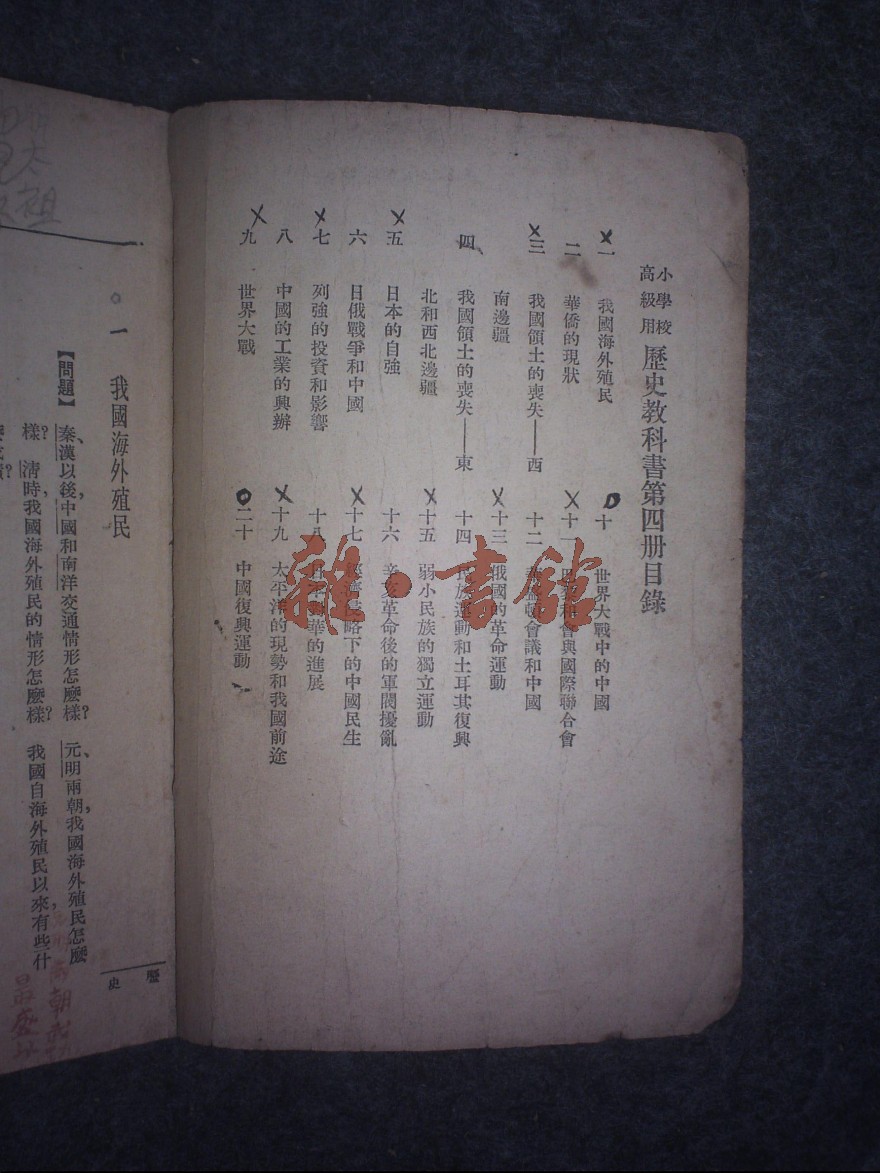 小學校高級用 歷史教科書第四册目錄
一 我國海外殖民
二 華僑的現狀
三 我國領土的喪失——西
南邊疆
四 我國領土的喪失——東
北和西北邊疆
五 日本的自強
六 日俄戰爭和中國
七 列強的投資和影響
八 中國的工業的興辦
九 世界大戰
十 世界大戰中的中國
十一 會與國際聯合會
十二 會議和中國
十三 俄國的革命運動
十四 民族運動和土耳其復興
十五 弱小民族的獨立運動
十六 辛亥革命後的軍閥擾亂
十七 略下的中國民生
十八 華的進展
十九 太平洋的現勢和我國前途
二十 中國復興運動
雜·書館
歷史
一
一 我國海外殖民
【問題】 秦漢以後,中國和南洋交通情形怎麽樣? 元、明兩朝,我國海外殖民怎麽
樣? 清時,我國海外殖民的情形怎麽樣? 我國自海外殖民以來,有些什
太祖
朝